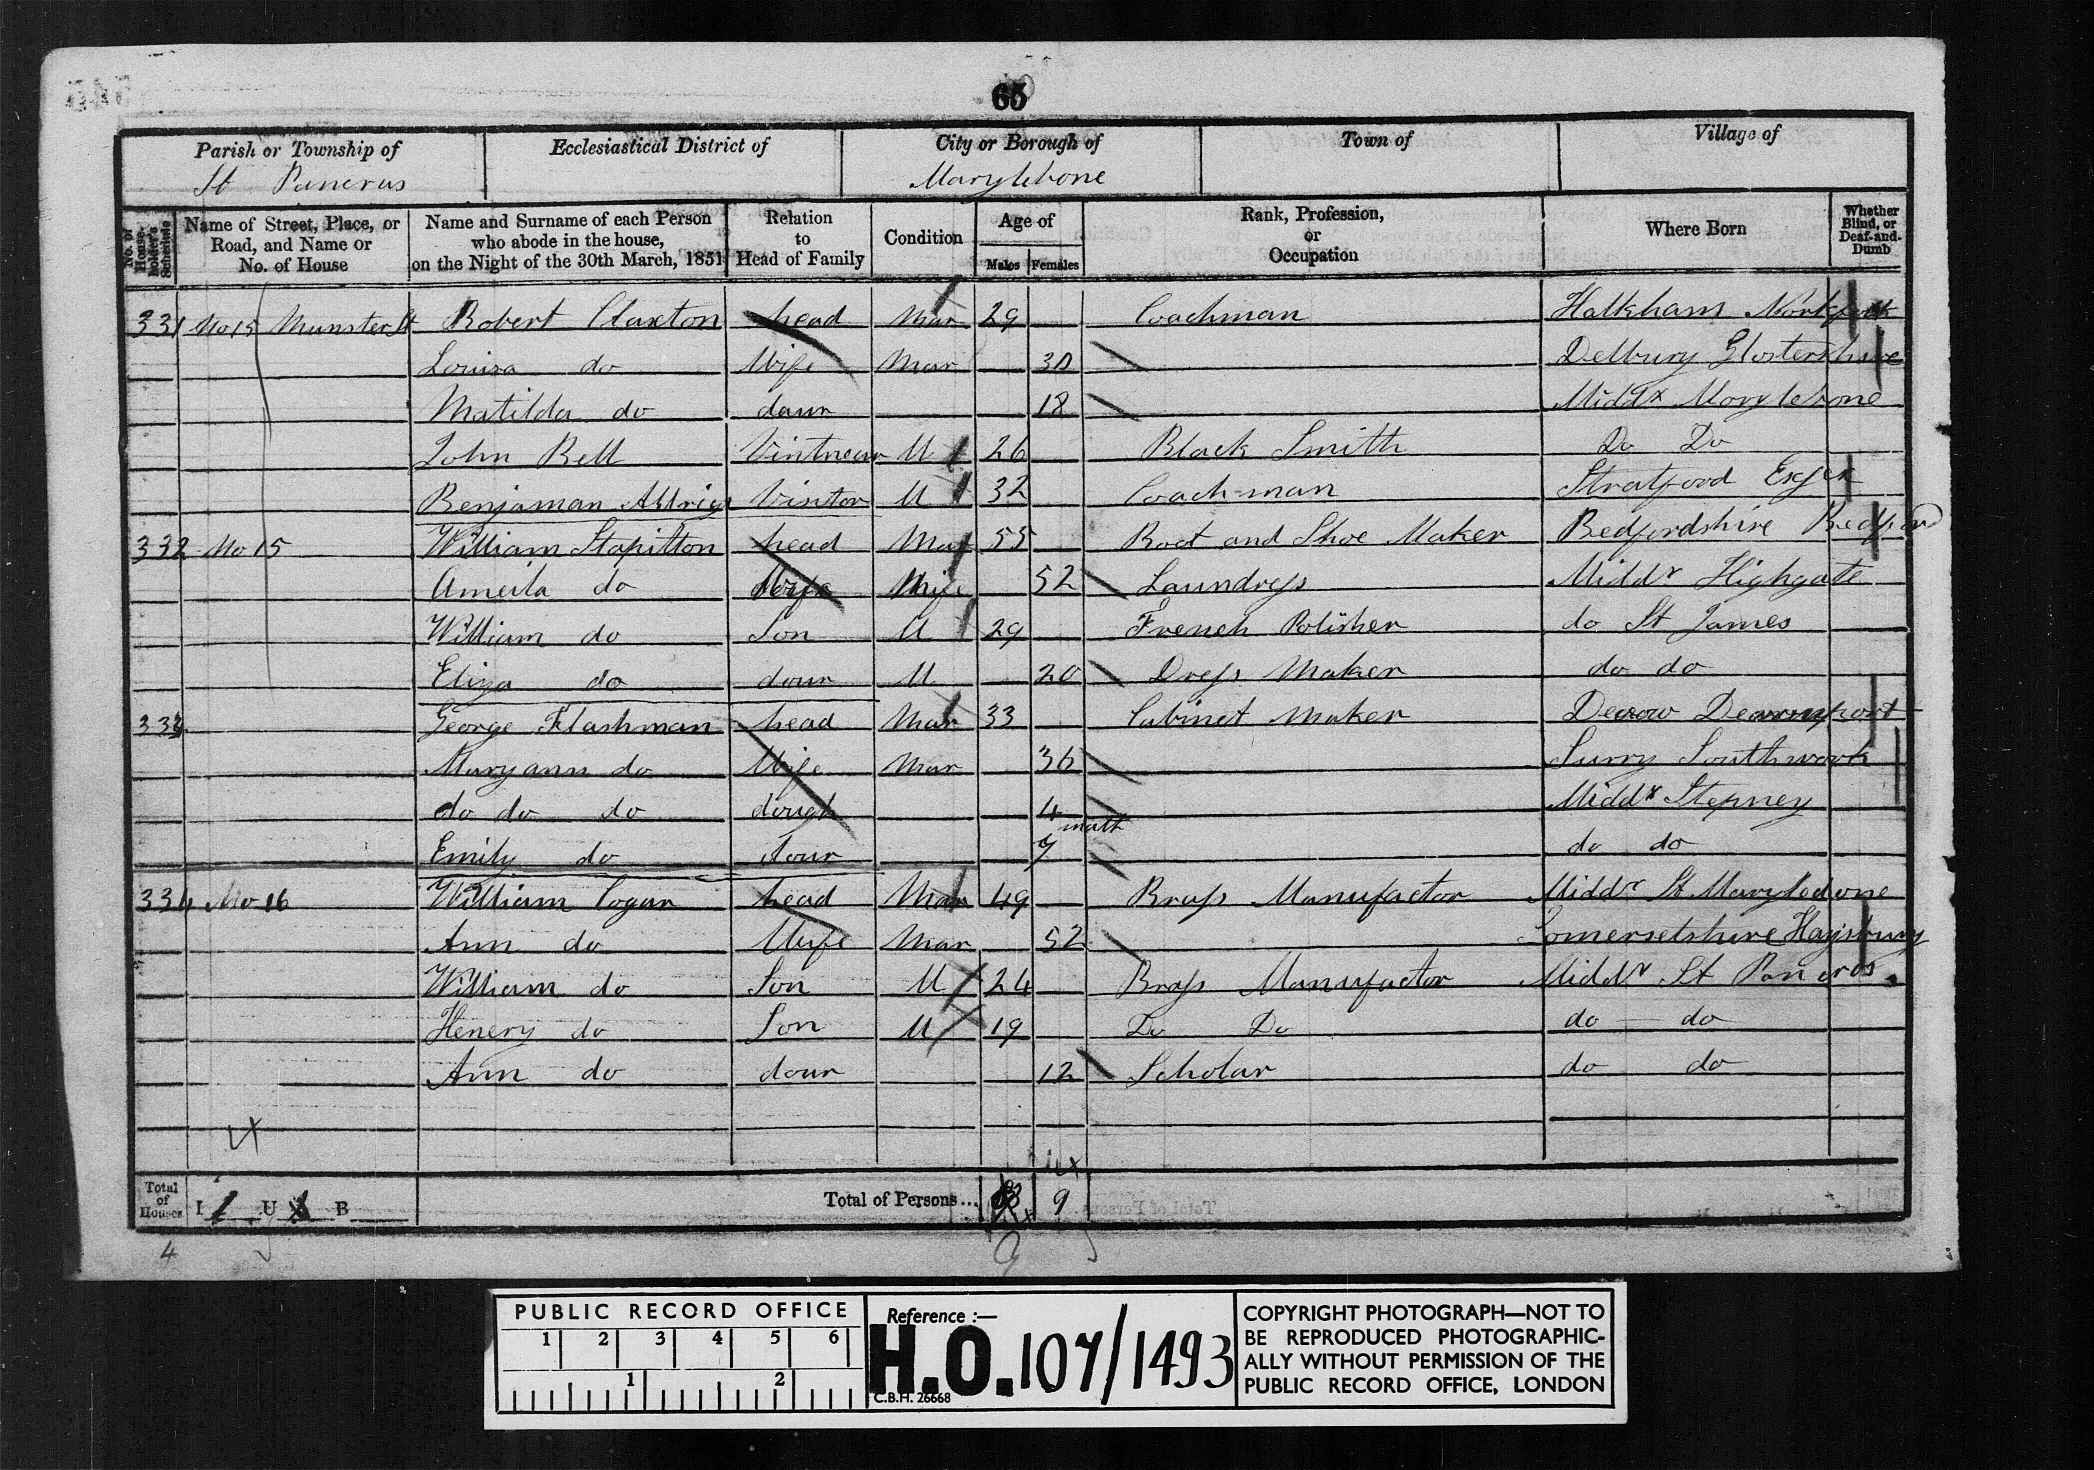 65
Parish or Township of
St Pancras
Ecclesiastical District of
City or Borough of
Marylebone
Town of
Village of
No. of House-holder's Schedule
Name of Street, Place, or Road, and Name or No. of House
Name and Surname of each Person who abode in the house, on the Night of the 30th March, 1851
Relation to Head of Family
Condition
Age of
Males Females
Rank, Profession, or Occupation
Where Born
Whether Blind, or Deaf-and-Dumb
331 No 15 Munster St Robert Claxton head Mar 29 Coachman Holkham Norfolk
Louisa do Wife Mar 30 Delbury Glostershire
Matilda do daur 18 Middx Marylebone
John Bell M 26 Black Smith Do Do
Benjaman Visitor U 32 Coach-man Stratford Essex
332 No 15 William Stapilton head Mar 55 Boot and Shoe Maker Bedfordshire Bedford
Ameila do Wife Wife 52 Laundress Middx Highgate
William do Son U 29 French Polisher do St James
Eliza do dour U 20 Dress Maker do do
333 George Flashman head Mar 33 Cabinet Maker
Maryann do Wife Mar 36 Surry Southwark
do do do dough 4 Middx Stepney
Emily do dour 9 month do do
334 No 16 William Cogar head Mar 49 Brass Manufactor Middx St Marylebone
Ann do Wife Mar 52 Somersetshire
William do Son U 24 Brass Manufactor Middx St Pancras
Henery do Son U 19 Do Do do do
Ann do dour 12 Scholar do do
Total of Houses I 1 U B
Total of Persons... 9
4
9
PUBLIC RECORD OFFICE
1 2 3 4 5 6
1 2
Reference :—
H.O. 107/1493
C.B.H. 26668
COPYRIGHT PHOTOGRAPH—NOT TO
BE REPRODUCED PHOTOGRAPHIC-
ALLY WITHOUT PERMISSION OF THE
PUBLIC RECORD OFFICE, LONDON